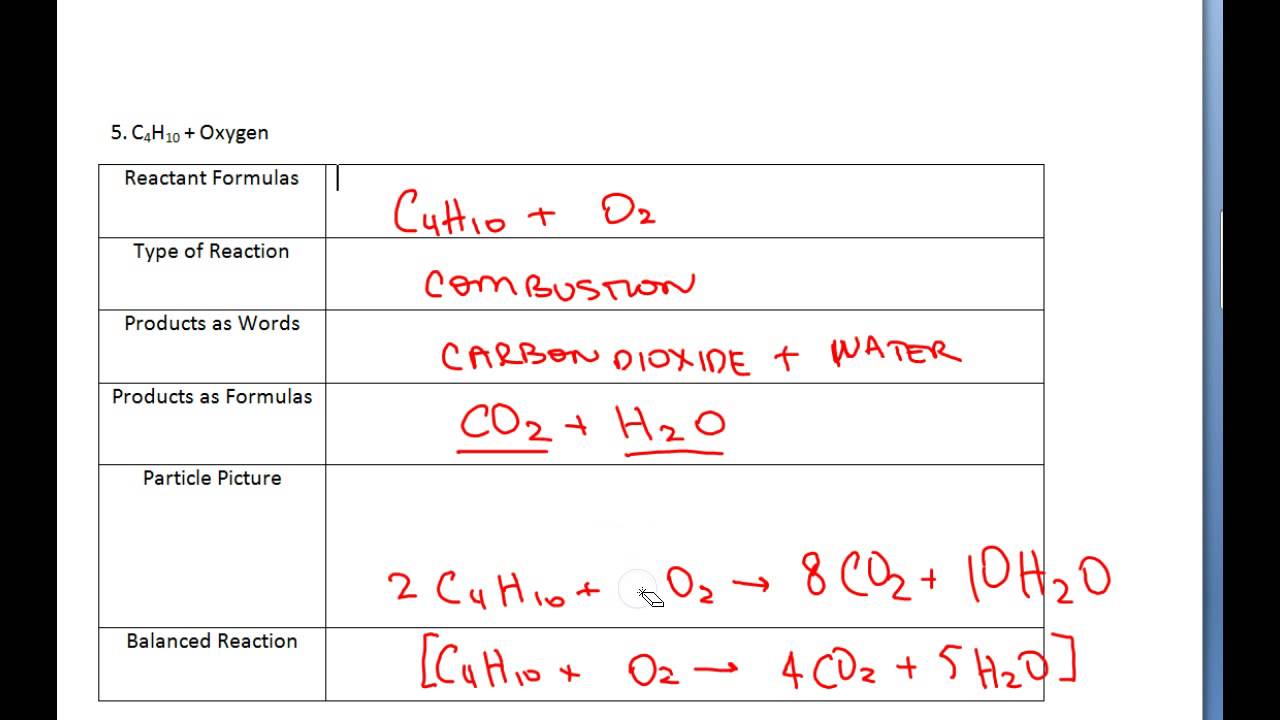 5. C₄H₁₀ + Oxygen
Reactant Formulas
C₄H₁₀ + O₂
Type of Reaction
COMBUSTION
Products as Words
CARBON DIOXIDE + WATER
Products as Formulas
CO₂ + H₂O
Particle Picture
2 C₄H₁₀ + O₂ → 8 CO₂ + 10 H₂O
Balanced Reaction
[C₄H₁₀ + O₂ → 4 CO₂ + 5 H₂O]